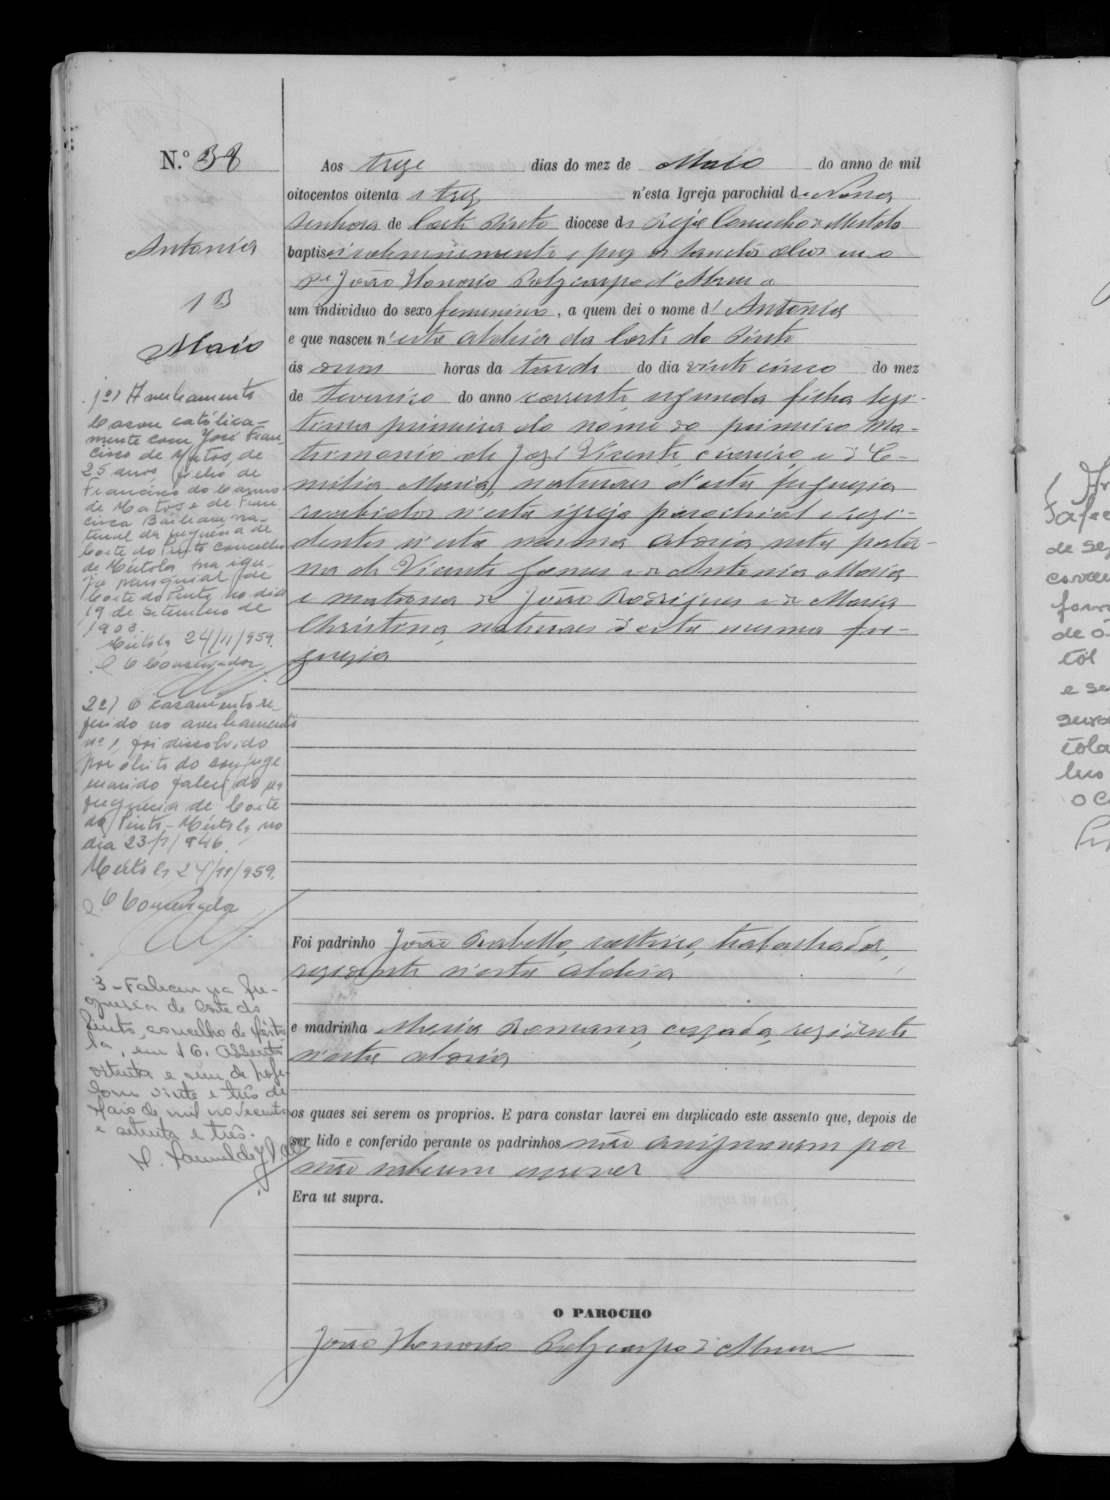 N.º 38
Antonia
13
Maio
Aos treze dias do mez de Maio do anno de mil
oitocentos oitenta e trez n'esta Igreja parochial de Nossa
Senhora de Corte Pinto diocese de Beja Concelho de Mertola
baptisei solemnemente e puz os sanctos oleos eu o
João Honorio Polycarpo d'Abreu a
um individuo do sexo femenino, a quem dei o nome d'Antonia
e que nasceu n'esta aldeia da Corte do Pinto
ás horas da tarde do dia vinte cinco do mez
de Fevereiro do anno corrente, segunda filha legi-
tima primeira do nome do primeiro Ma-
trimonio de José Vicente, e de E-
milia Maria, naturaes d'esta freguezia
recebidos n'esta igreja parochial e rezi-
dentes n'esta mesma aldeia neta pater-
na de Vicente Gomes e de Antonia Maria
e materna de João Rodrigues e de Maria
Christina, naturaes d'esta mesma fre-
guezia
Foi padrinho João Rabello, solteiro, trabalhador,
rezidente n'esta aldeia
e madrinha Maria Romana, cazada, rezidente
n'esta aldeia
os quaes sei serem os proprios. E para constar lavrei em duplicado este assento que, depois de
ser lido e conferido perante os padrinhos não assignaram por
não saberem escrever
Era ut supra.
O PAROCHO
João Honorio Polycarpo d'Abreu
1º) Averbamento
Casou catolica-
mente com José Fran
cisco de Matos, de
25 anos, filho de
Francisco do Carmo
de Matos e de Fran
cisca Bárbara na-
tural da freguesia de
Corte do Pinto concelho
de Mértola na igre-
ja paroquial de
Corte do Pinto, no dia
19 de Setembro de
1903.
Mértola, 24/11/959.
O Conservador
2º) O casamento re-
ferido no averbamento
nº 1, foi dissolvido
por óbito do conjuge
marido falecido na
freguesia de Corte
do Pinto - Mértola, no
dia 23/1/946.
Mértola 24/11/959.
O Conservador
3 - Faleceu na fre-
guesia de Corte do
Pinto, concelho de Mérto-
la, em 16. Assento
oitenta e um de
vinte e três de
Maio de mil novecentos
e setenta e três.